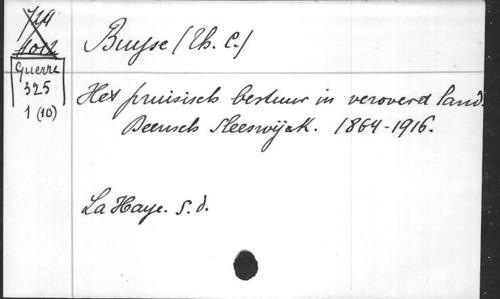 Buyse (Th. C.)
Guerre
325
1 (10)
Het pruisisch bestuur in veroverd land.
Deensch Sleeswijck. 1864-1916.
La Haye. s. d.